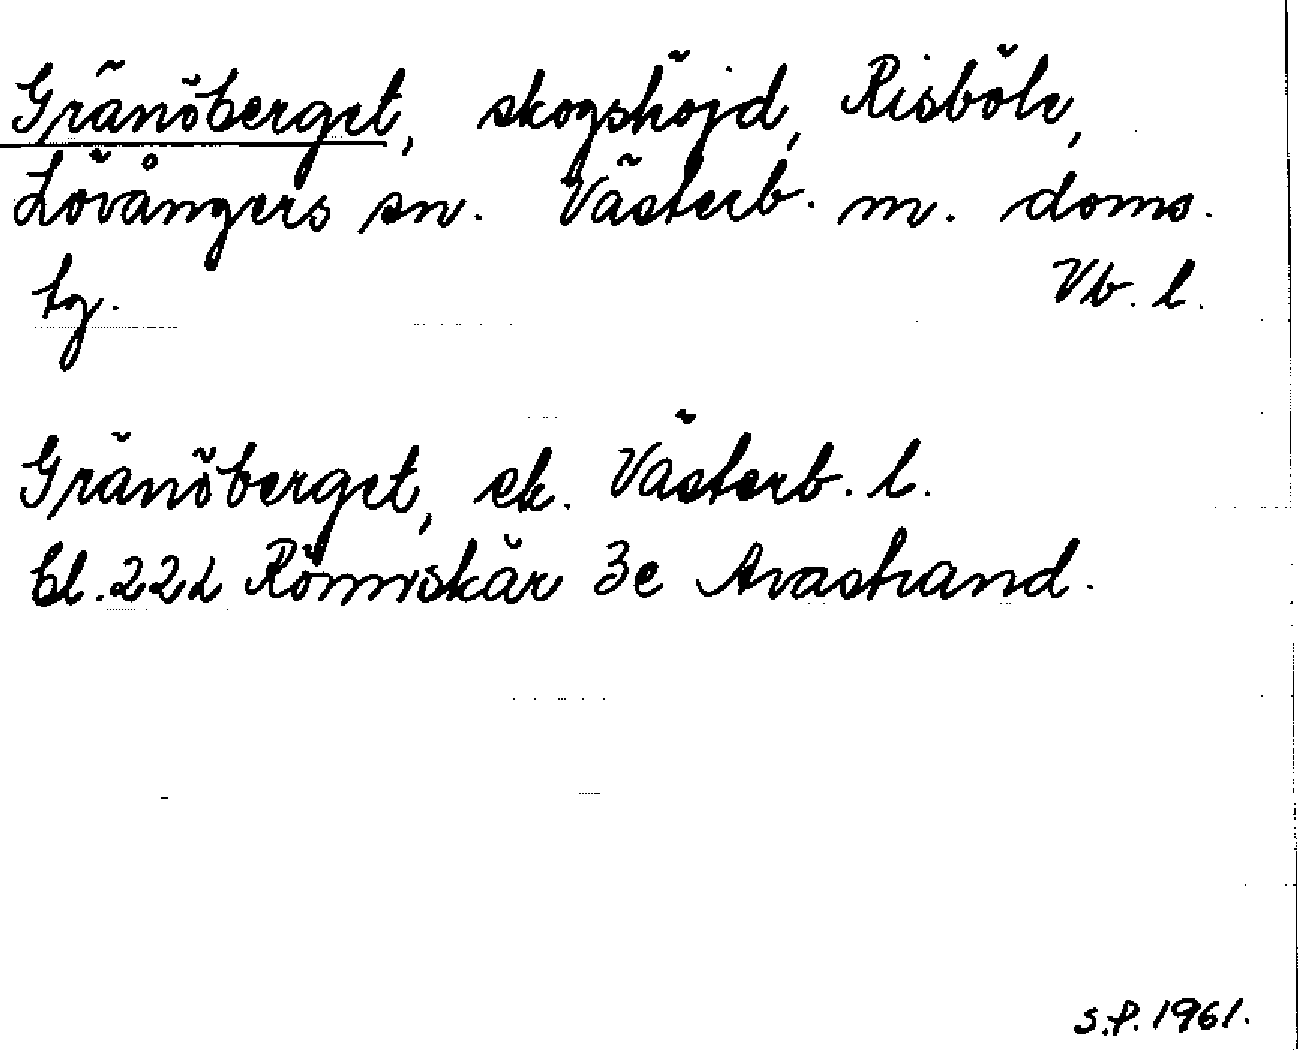 Gränöberget, skogshöjd, Risböle,
Lövångers sn. Västerb. m. doms.
tg. Vb. l.
Gränöberget, ek. Västerb. l.
bl. 222 Rönnskär 3e Avastrand.
S.P. 1961.